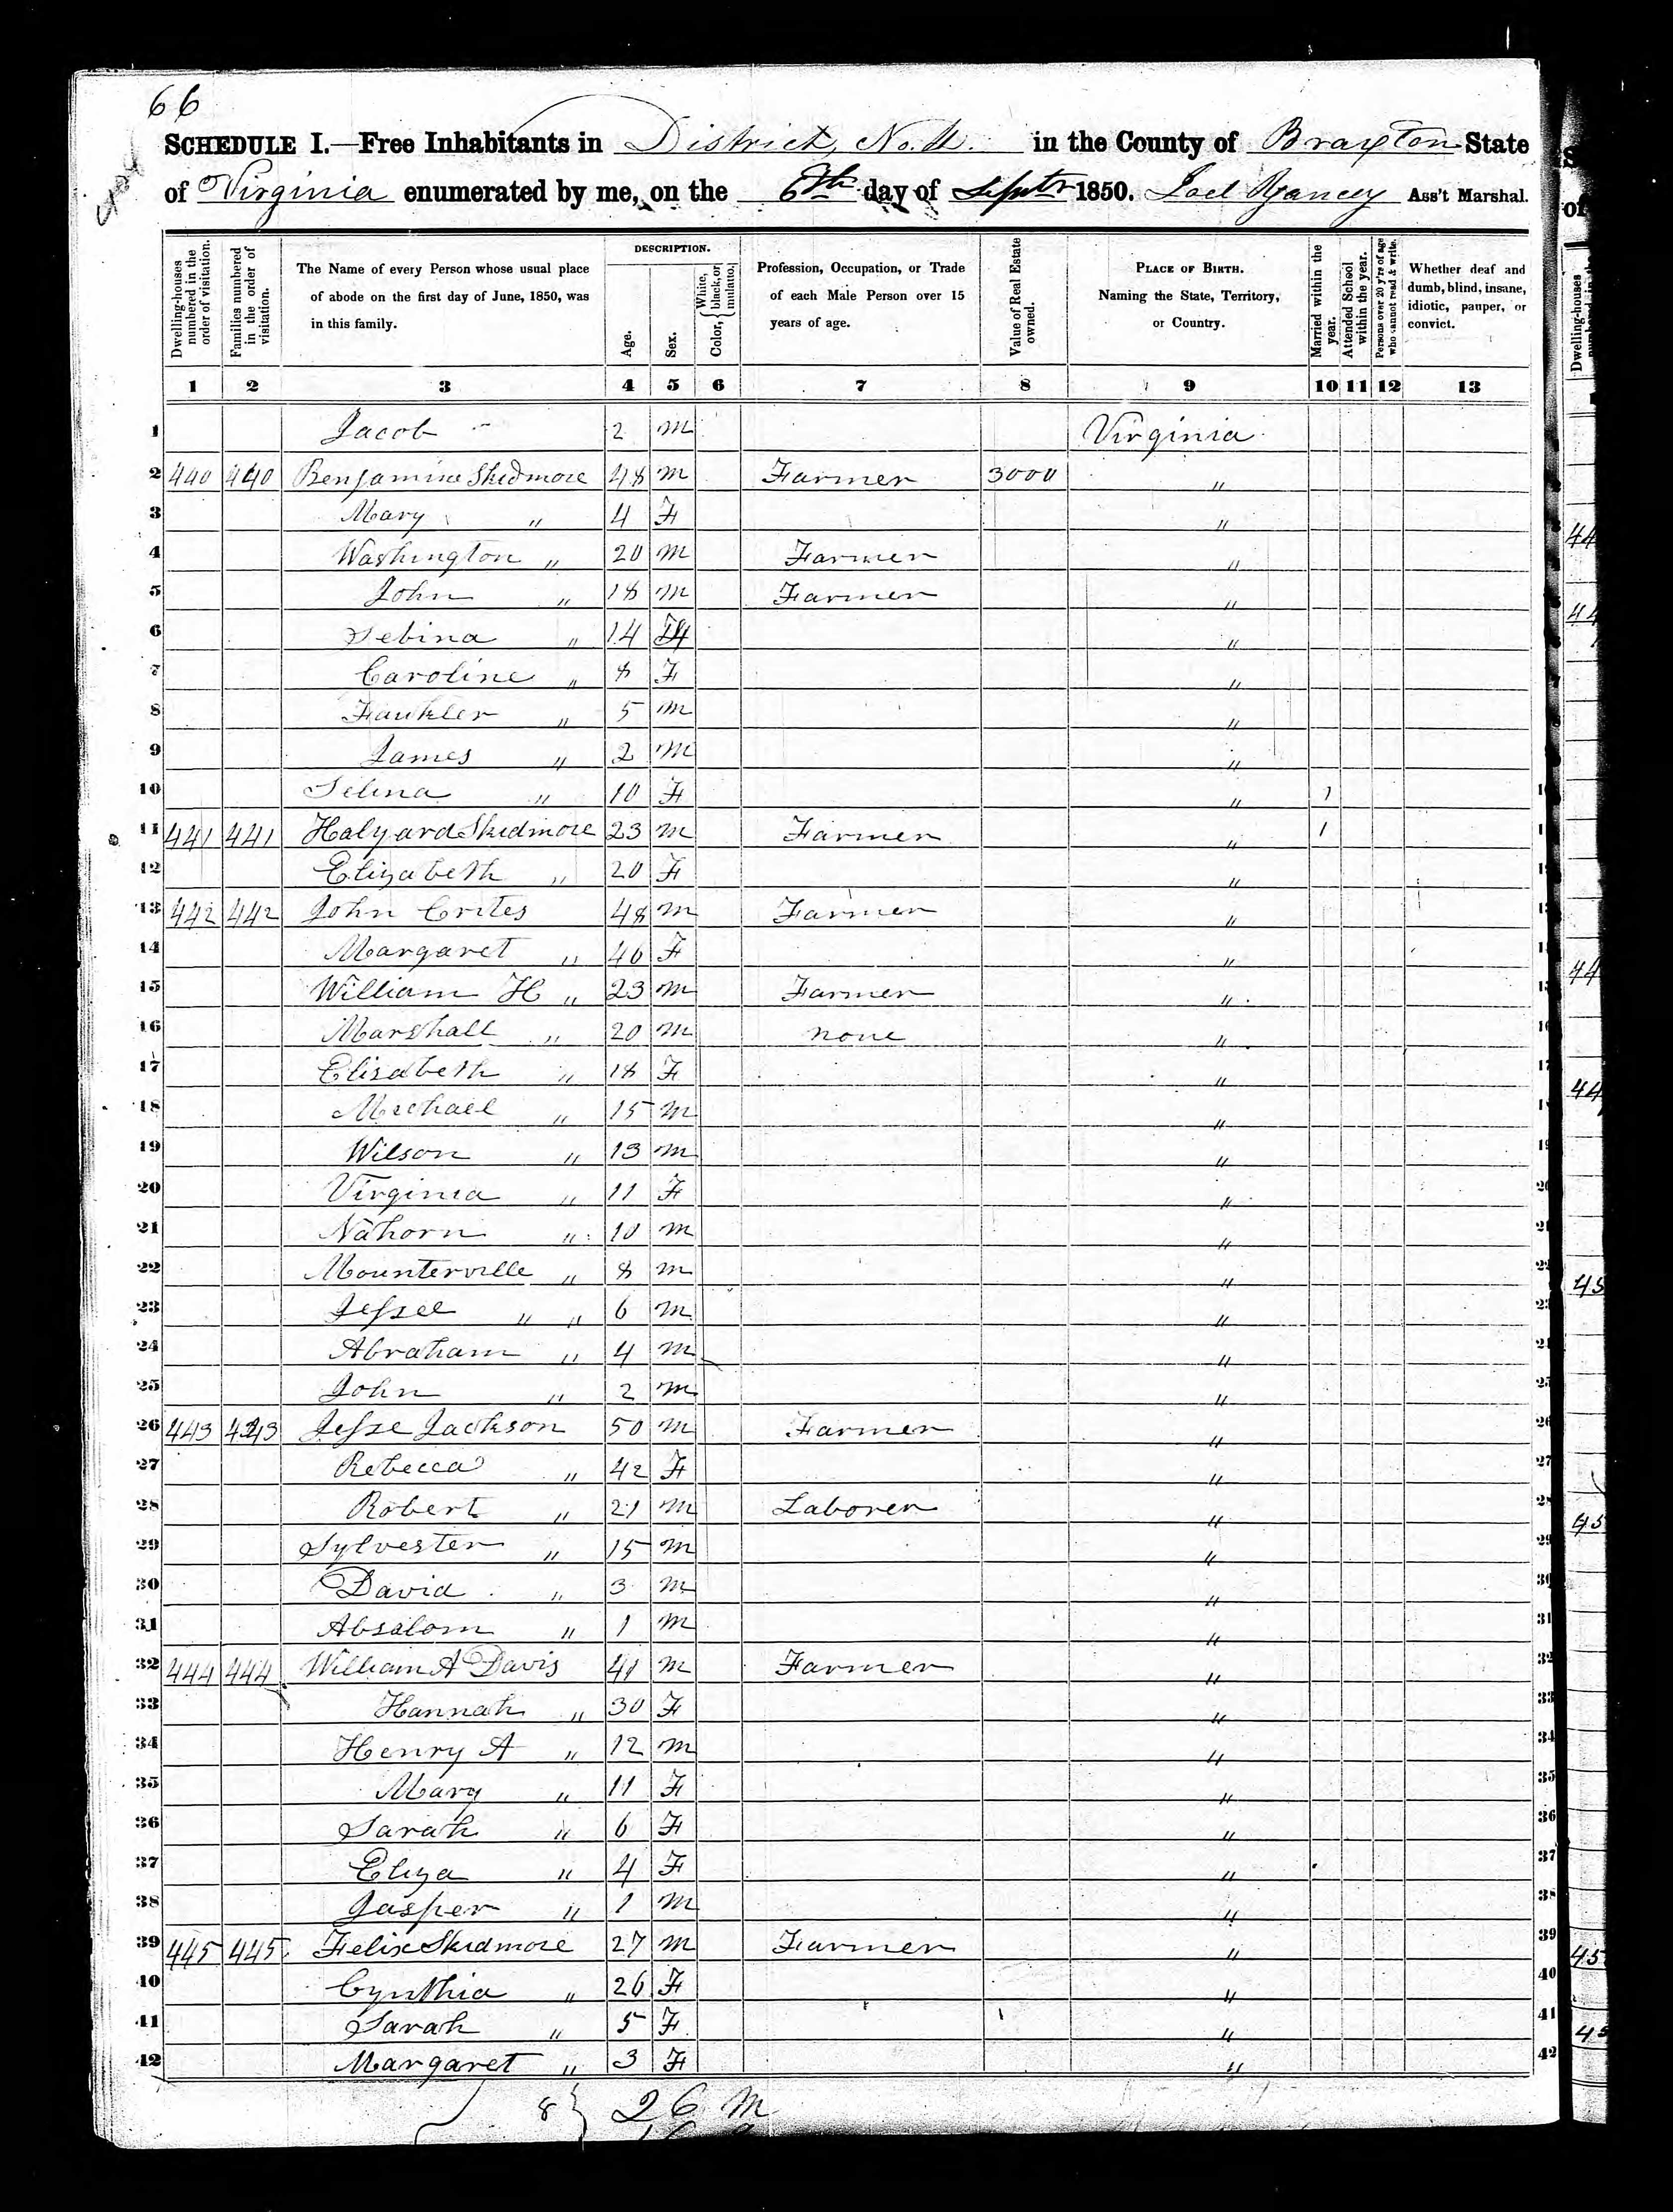 66
SCHEDULE I.—Free Inhabitants in District No. 4. in the County of Braxton State
of Virginia enumerated by me, on the 6th day of Septr 1850. Joel Yancey Ass't Marshal.
Dwelling-houses numbered in the order of visitation.
Families numbered in the order of visitation.
The Name of every Person whose usual place of abode on the first day of June, 1850, was in this family.
DESCRIPTION.
Age.
Sex.
Color, { White, black, or mulatto.
Profession, Occupation, or Trade of each Male Person over 15 years of age.
Value of Real Estate owned.
PLACE OF BIRTH. Naming the State, Territory, or Country.
Married within the year.
Attended School within the year.
Persons over 20 y'rs of age who cannot read & write.
Whether deaf and dumb, blind, insane, idiotic, pauper, or convict.
1 2 3 4 5 6 7 8 9 10 11 12 13
1 Jacob " 2 M Virginia 1
2 440 440 Benjamine Skidmore 48 M Farmer 3000 "
3 Mary " 4 F "
4 Washington " 20 M Farmer "
5 John " 18 M Farmer "
6 Sebina " 14 F "
7 Caroline " 8 F "
8 Faukler " 5 M "
9 James " 2 M "
10 Selina " 10 F " 1
11 441 441 Halyard Skidmore 23 M Farmer " 1
12 Elizabeth " 20 F "
13 442 442 John Crites 48 M Farmer "
14 Margaret " 46 F "
15 William H " 23 M Farmer "
16 Marshall " 20 M none "
17 Elisabeth " 18 F "
18 Michael " 15 M "
19 Wilson " 13 M "
20 Virginia " 11 F "
21 Nahorn " 10 M "
22 Mounterville " 8 M "
23 Jessee " " 6 M "
24 Abraham " 4 M "
25 John " 2 M "
26 443 443 Jesse Jackson 50 M Farmer " 26
27 Rebecca " 42 F " 27
28 Robert " 21 M Laborer " 28
29 Sylvester " 15 M " 29
30 David " 3 M " 30
31 Absalom " 1 M " 31
32 444 444 William A Davis 41 M Farmer " 32
33 Hannah " 30 F " 33
34 Henry A " 12 M " 34
35 Mary " 11 F " 35
36 Sarah " 6 F " 36
37 Eliza " 4 F " 37
38 Jasper " 1 M " 38
39 445 445 Felix Skidmore 27 M Farmer " 39
40 Cynthia " 26 F " 40
41 Sarah " 5 F " 41
42 Margaret " 3 F " 42
8 } 26 M